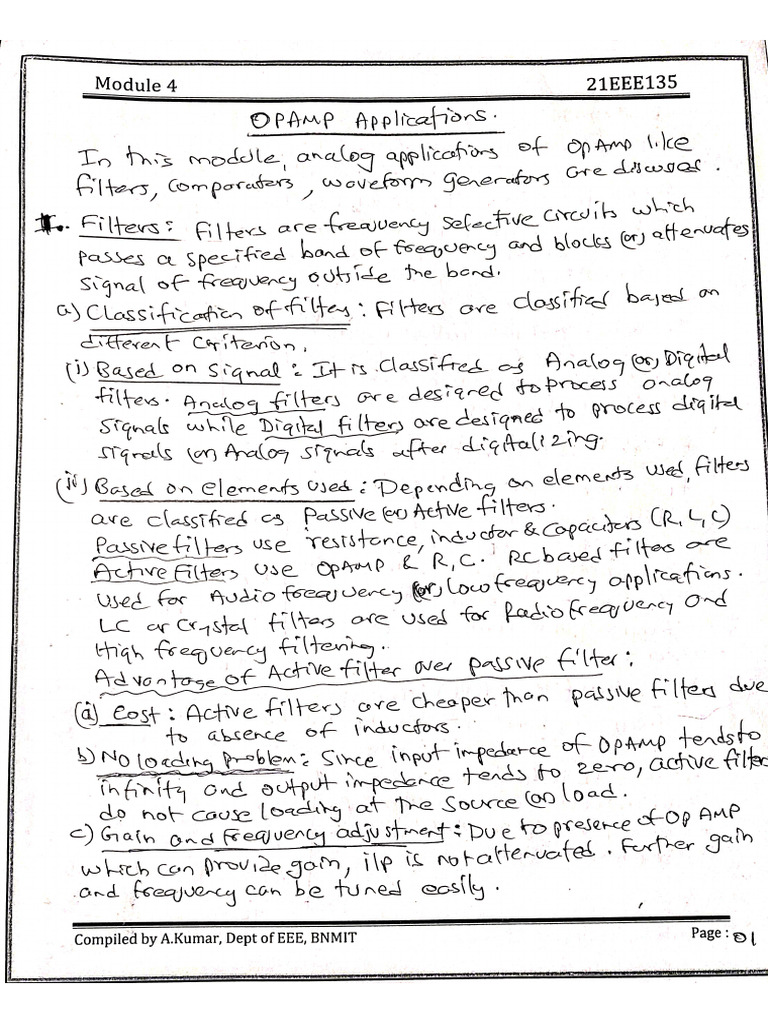 Module 4 21EEE135
OPAMP Applications.
In this module, analog applications of OpAmp like
filters, comparators, waveform generators are discuses.
I. Filters: Filters are frequency selective circuits which
passes a specified band of frequency and blocks (or) attenuates
signal of frequency outside the band.
a) Classification of filters: Filters are classified based on
different Criterion.
(i) Based on Signal: It is classified as Analog (or) Digital
filters. Analog filters are designed to process analog
signals while Digital filters are designed to process digital
signals (or) Analog signals after digitalizing.
(ii) Based on elements used: Depending on elements used, filters
are classified as Passive (or) Active filters.
Passive filters use resistance, inductor & Capacitors (R, L, C)
Active Filters use OpAMP & R, C. RC based filters are
used for Audio frequency (or) low frequency applications.
LC or Crystal filters are used for Radio frequency and
High frequency filtering.
Advantage of Active filter over passive filter:
(a) Cost: Active filters are cheaper than passive filters due
to absence of inductors.
b) No loading problem: Since input impedance of OPAMP tends to
infinity and output impedance tends to zero, active filter
do not cause loading at the source (or) load.
c) Gain and frequency adjustment: Due to presence of Op AMP
which can provide gain, i/p is not attenuated. Further gain
and frequency can be tuned easily.
Compiled by A.Kumar, Dept of EEE, BNMIT Page : 01